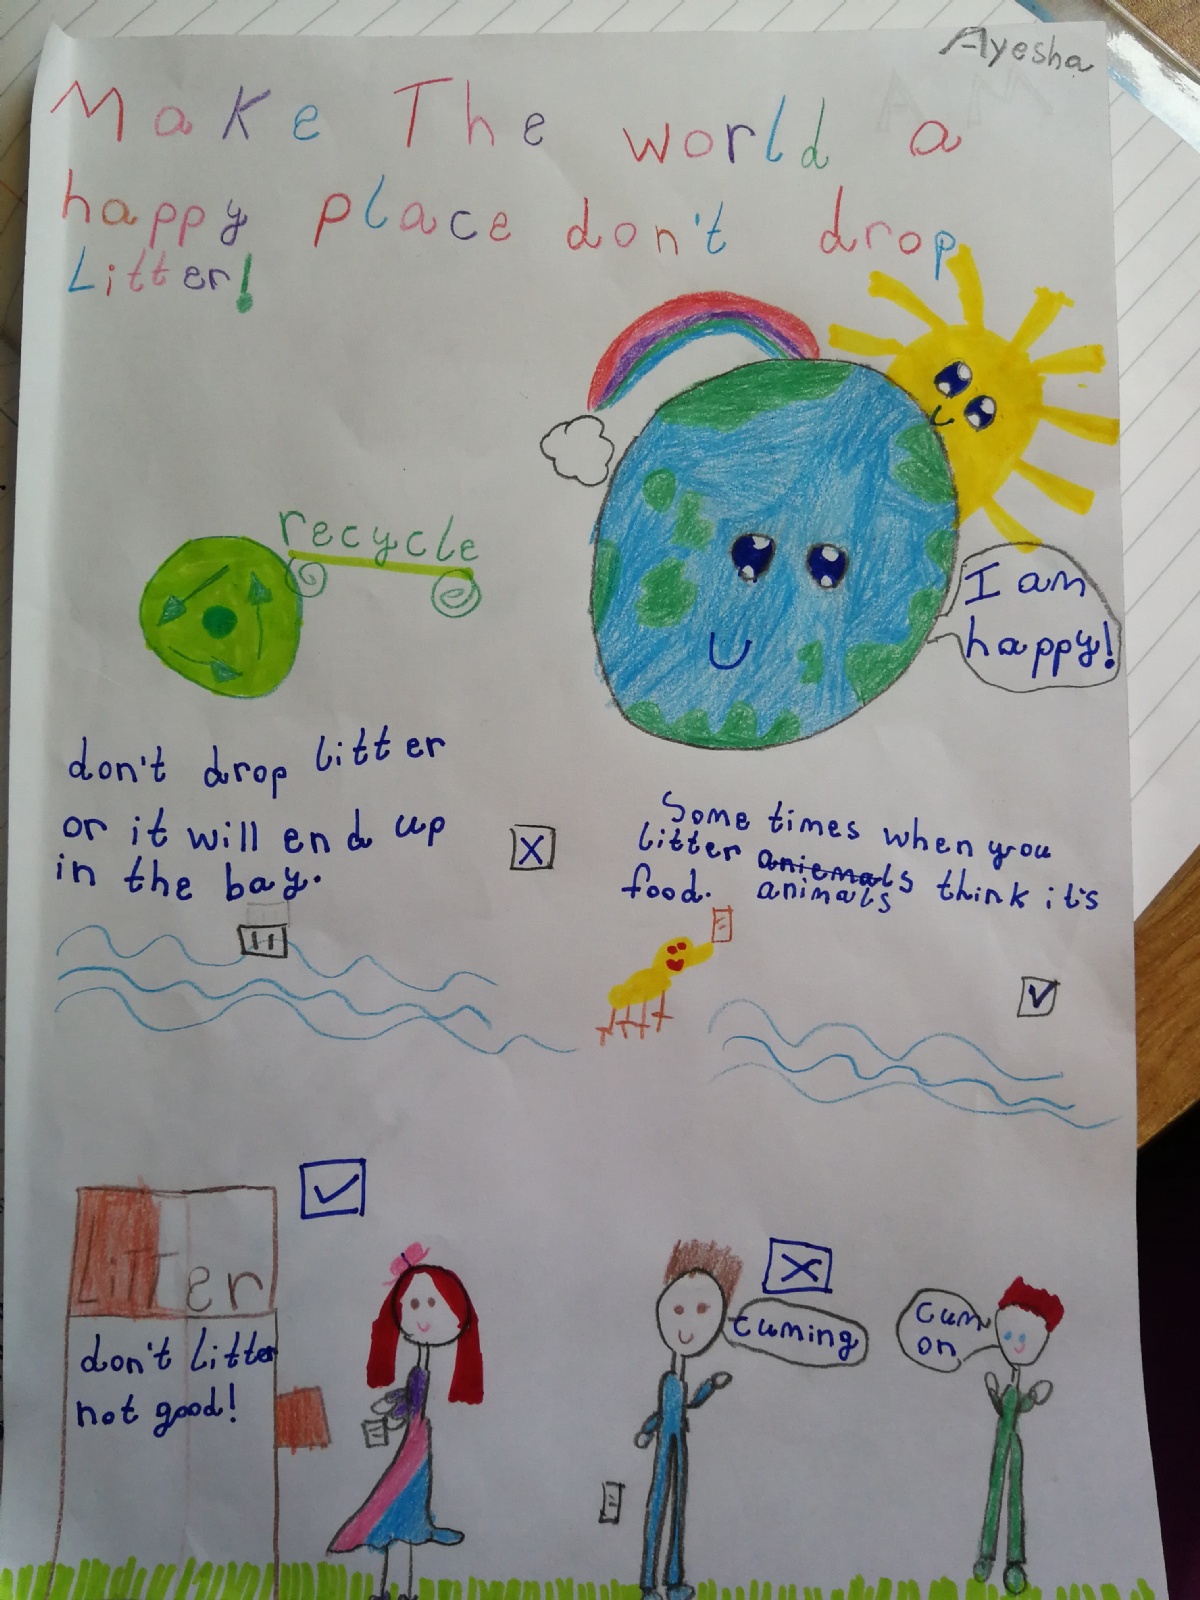 Ayesha
Make The world a
happy place don't drop
Litter!
recycle
I am
happy!
don't drop litter
or it will end up
in the bay.
Some times when you
litter aniemals think it's
food. animals
Litter
don't litter
not good!
cuming
cum
on